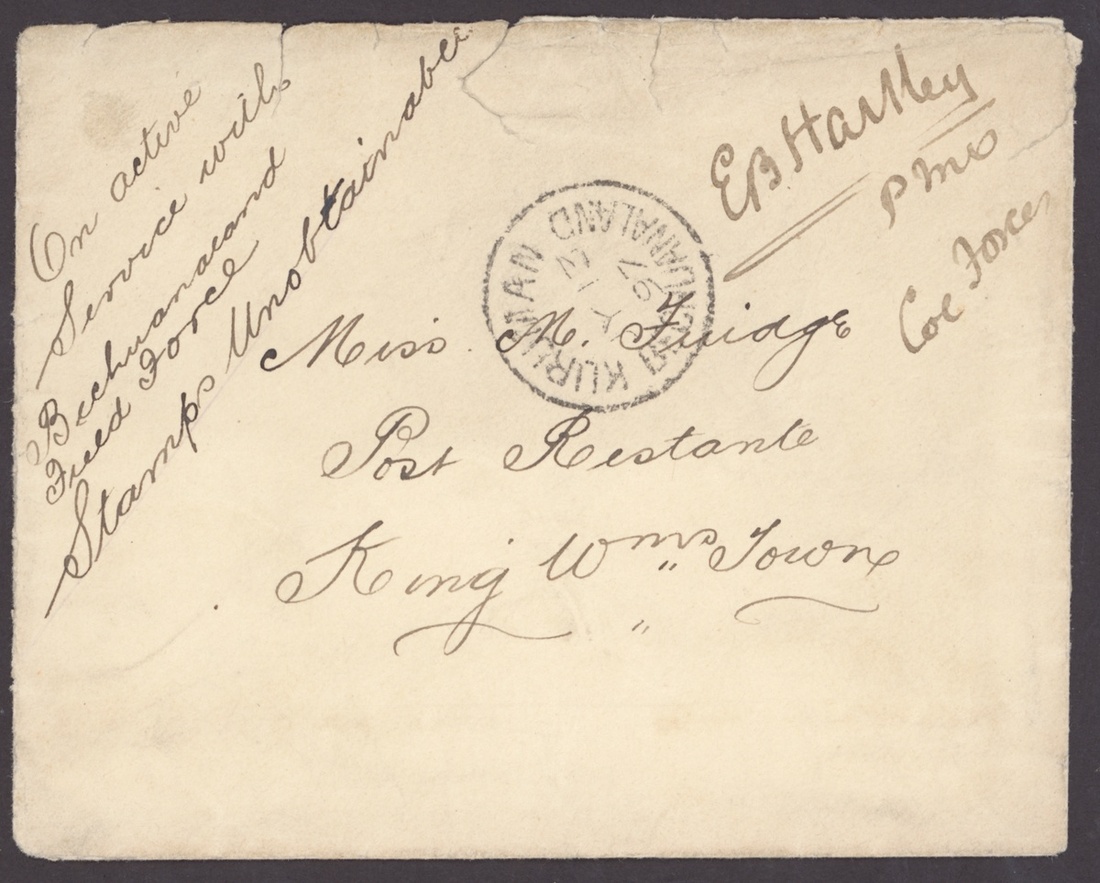 On active
Service with
Bechuanaland
Field Force
Stamps Unobtainable
EB Hartley
PMO
Col Forces
KURUMAN
BECHUANALAND
97
Miss M. Fuidge
Post Restante
King Wms Town